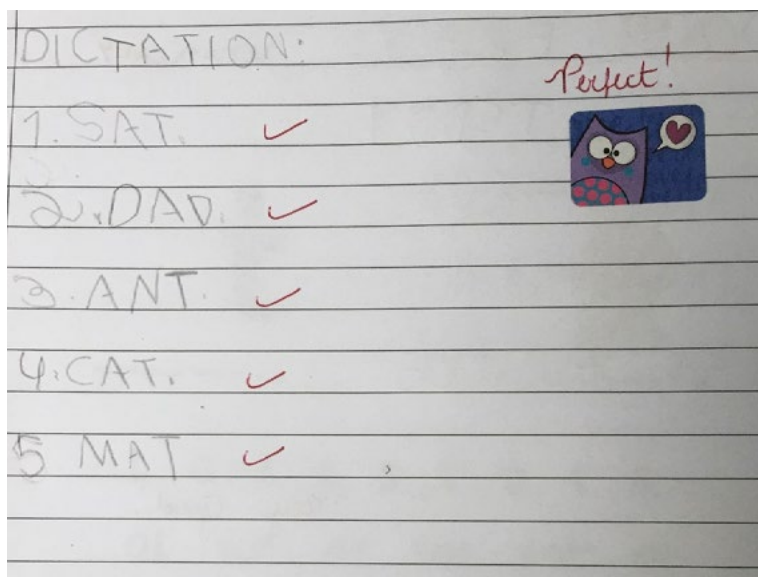 DICTATION:
Perfect!
1. SAT.
2. DAD.
3. ANT.
4. CAT.
5 MAT